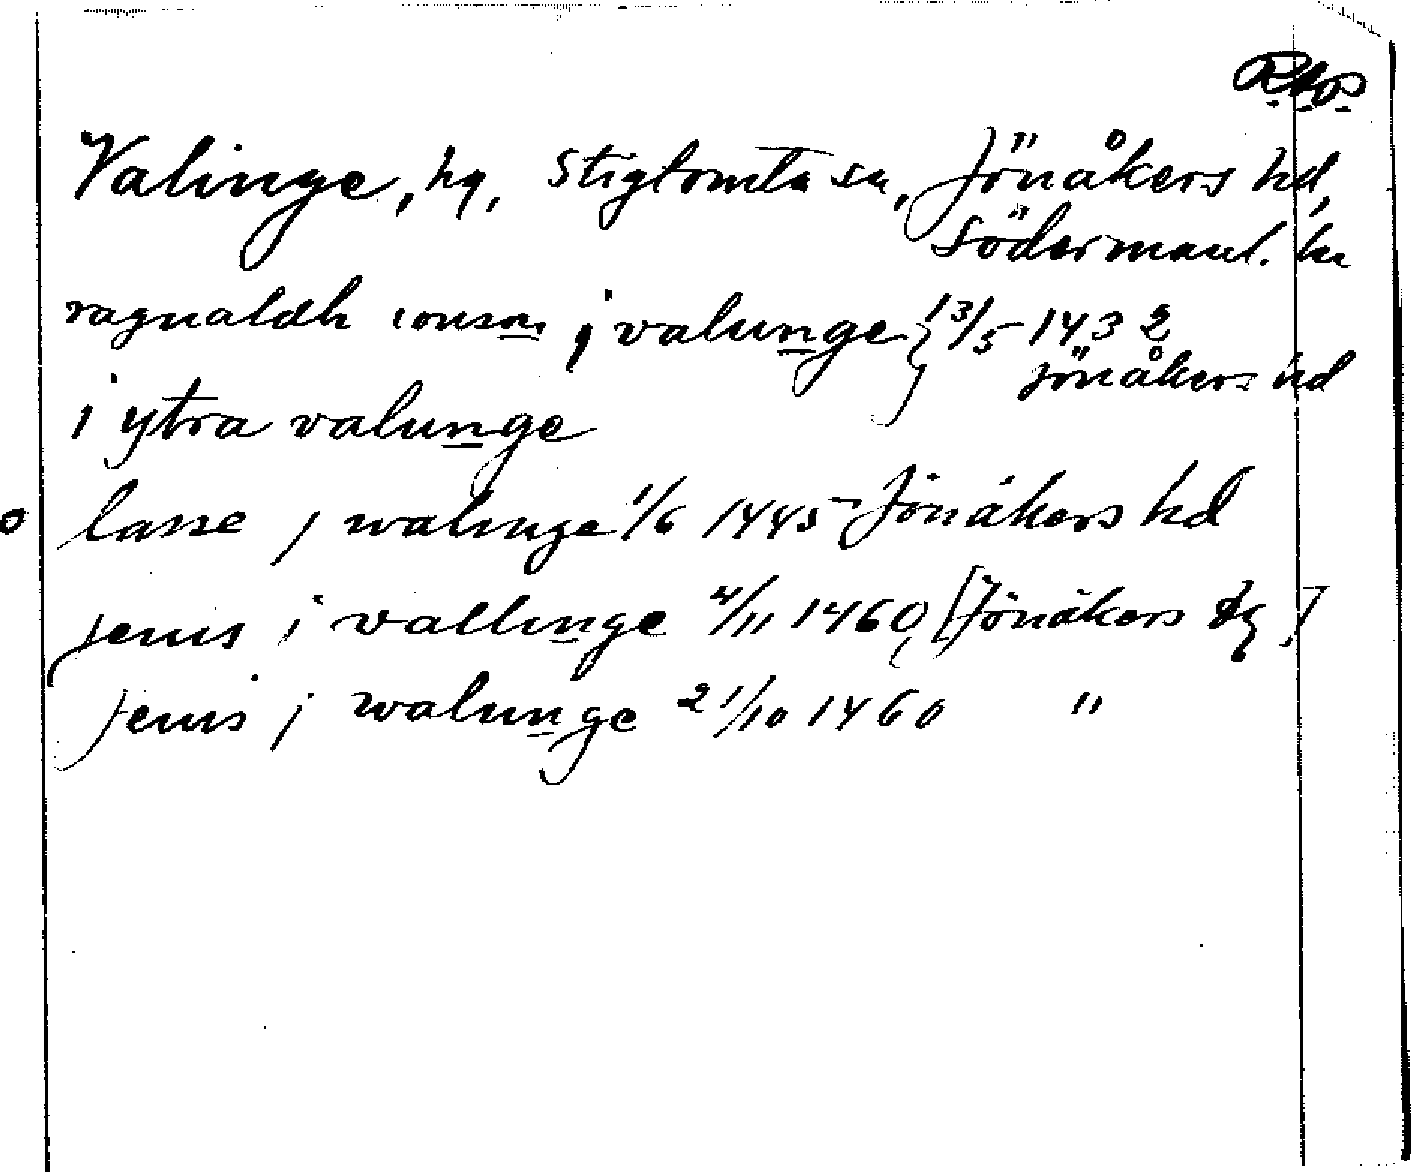 Valinge, hg, Stigtomta sn, Jönåkers hd,
Södermanl. län
ragnaldh ionson j valunge } 13/5 1432
jönåkers hd
i ytra valunge
o lasse j walinge 1/6 1445 Jönåkers hd
jenis i vallinge 4/11 1460, [Jönåkers tg]
jenis j walunge 21/10 1460 "